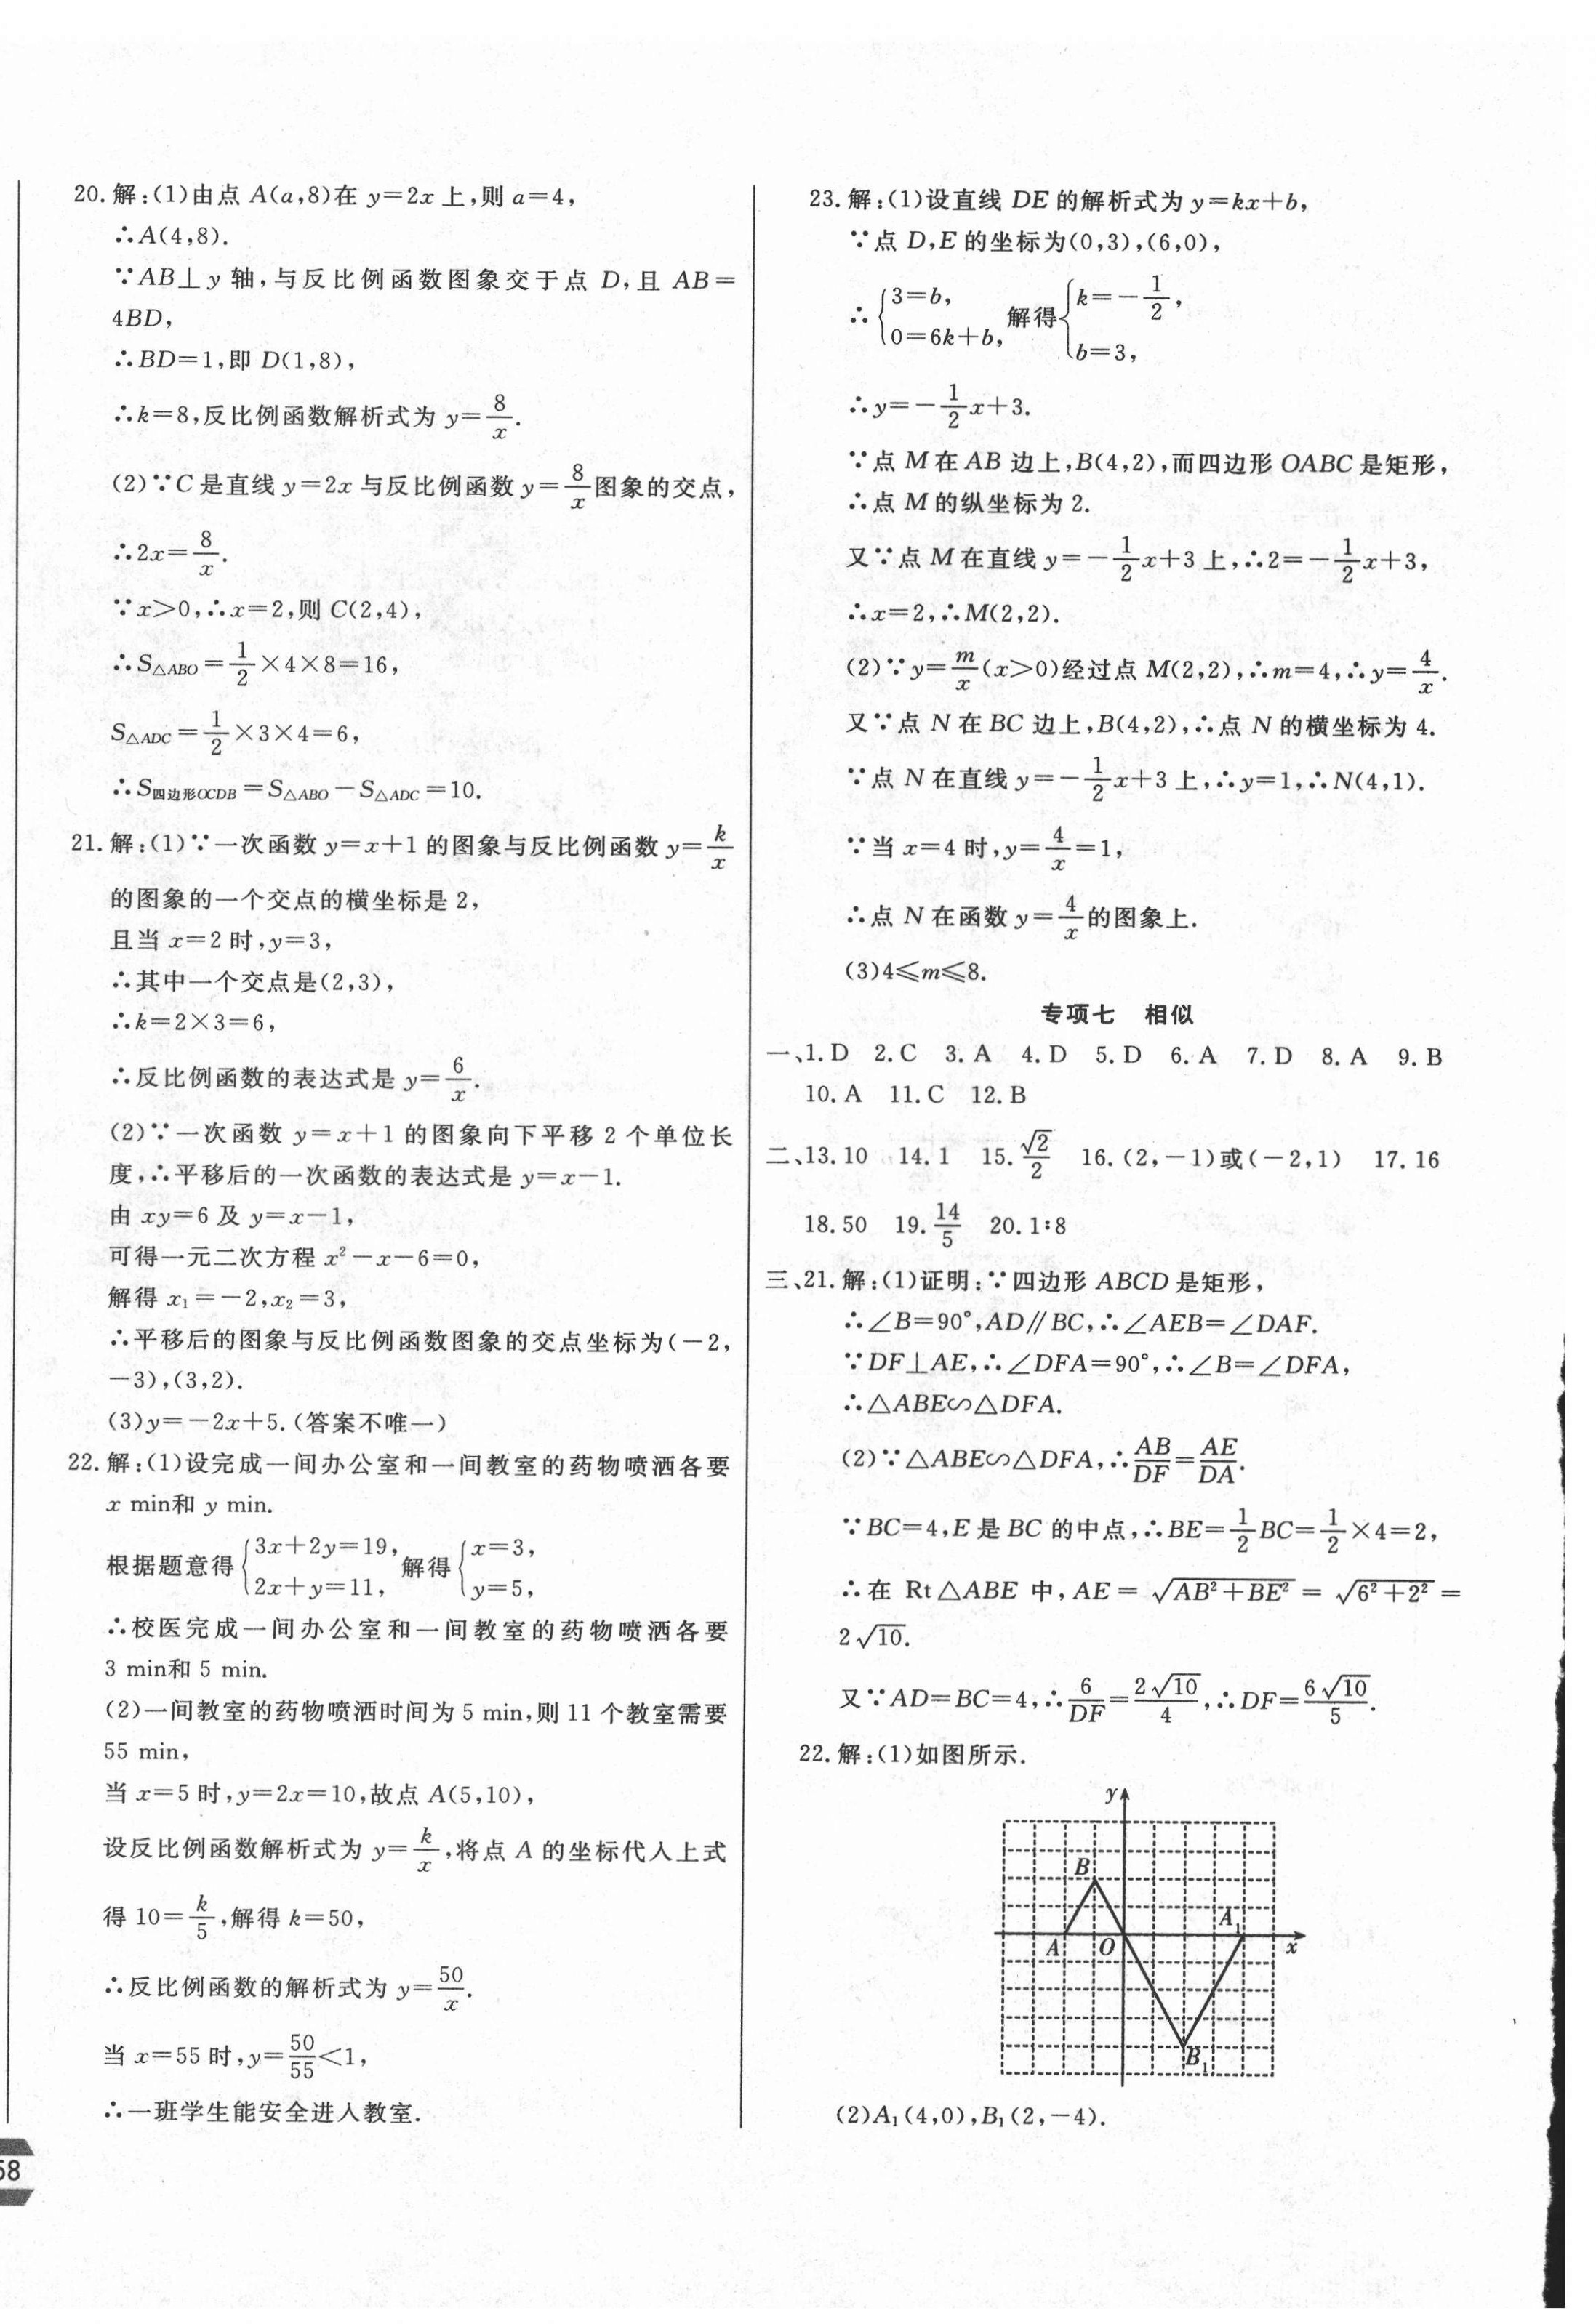 20.解:(1)由点 A(a,8)在 y=2x 上,则 a=4,
∴A(4,8).
∵AB⊥y 轴,与反比例函数图象交于点 D,且 AB=
4BD,
∴BD=1,即 D(1,8),
∴k=8,反比例函数解析式为 y=8/x.
(2)∵C 是直线 y=2x 与反比例函数 y=8/x图象的交点,
∴2x=8/x.
∵x>0,∴x=2,则 C(2,4),
∴S△ABO=1/2×4×8=16,
S△ADC=1/2×3×4=6,
∴S四边形OCDB=S△ABO-S△ADC=10.
21.解:(1)∵一次函数 y=x+1 的图象与反比例函数 y=k/x
的图象的一个交点的横坐标是 2,
且当 x=2 时,y=3,
∴其中一个交点是(2,3),
∴k=2×3=6,
∴反比例函数的表达式是 y=6/x.
(2)∵一次函数 y=x+1 的图象向下平移 2 个单位长
度,∴平移后的一次函数的表达式是 y=x-1.
由 xy=6 及 y=x-1,
可得一元二次方程 x²-x-6=0,
解得 x₁=-2,x₂=3,
∴平移后的图象与反比例函数图象的交点坐标为(-2,
-3),(3,2).
(3)y=-2x+5.(答案不唯一)
22.解:(1)设完成一间办公室和一间教室的药物喷洒各要
x min和 y min.
根据题意得{3x+2y=19, 2x+y=11, 解得{x=3, y=5,
∴校医完成一间办公室和一间教室的药物喷洒各要
3 min和 5 min.
(2)一间教室的药物喷洒时间为 5 min,则 11 个教室需要
55 min,
当 x=5 时,y=2x=10,故点 A(5,10),
设反比例函数解析式为 y=k/x,将点 A 的坐标代入上式
得 10=k/5,解得 k=50,
∴反比例函数的解析式为 y=50/x.
当 x=55 时,y=50/55<1,
∴一班学生能安全进入教室.
58
23.解:(1)设直线 DE 的解析式为 y=kx+b,
∵点 D,E 的坐标为(0,3),(6,0),
∴{3=b, 0=6k+b, 解得{k=-1/2, b=3,
∴y=-1/2x+3.
∵点 M 在 AB 边上,B(4,2),而四边形 OABC 是矩形,
∴点 M 的纵坐标为 2.
又∵点 M 在直线 y=-1/2x+3 上,∴2=-1/2x+3,
∴x=2,∴M(2,2).
(2)∵y=m/x(x>0)经过点 M(2,2),∴m=4,∴y=4/x.
又∵点 N 在 BC 边上,B(4,2),∴点 N 的横坐标为 4.
∵点 N 在直线 y=-1/2x+3 上,∴y=1,∴N(4,1).
∵当 x=4 时,y=4/x=1,
∴点 N 在函数 y=4/x的图象上.
(3)4≤m≤8.
专项七 相似
一、1.D 2.C 3.A 4.D 5.D 6.A 7.D 8.A 9.B
10.A 11.C 12.B
二、13.10 14.1 15.√2/2 16.(2,-1)或(-2,1) 17.16
18.50 19.14/5 20.1∶8
三、21.解:(1)证明:∵四边形 ABCD 是矩形,
∴∠B=90°,AD∥BC,∴∠AEB=∠DAF.
∵DF⊥AE,∴∠DFA=90°,∴∠B=∠DFA,
∴△ABE∽△DFA.
(2)∵△ABE∽△DFA,∴AB/DF=AE/DA.
∵BC=4,E 是 BC 的中点,∴BE=1/2BC=1/2×4=2,
∴在 Rt△ABE 中,AE=√(AB²+BE²)=√(6²+2²)=
2√10.
又∵AD=BC=4,∴6/DF=2√10/4,∴DF=6√10/5.
22.解:(1)如图所示.
y
B
A₁
A O x
B₁
(2)A₁(4,0),B₁(2,-4).